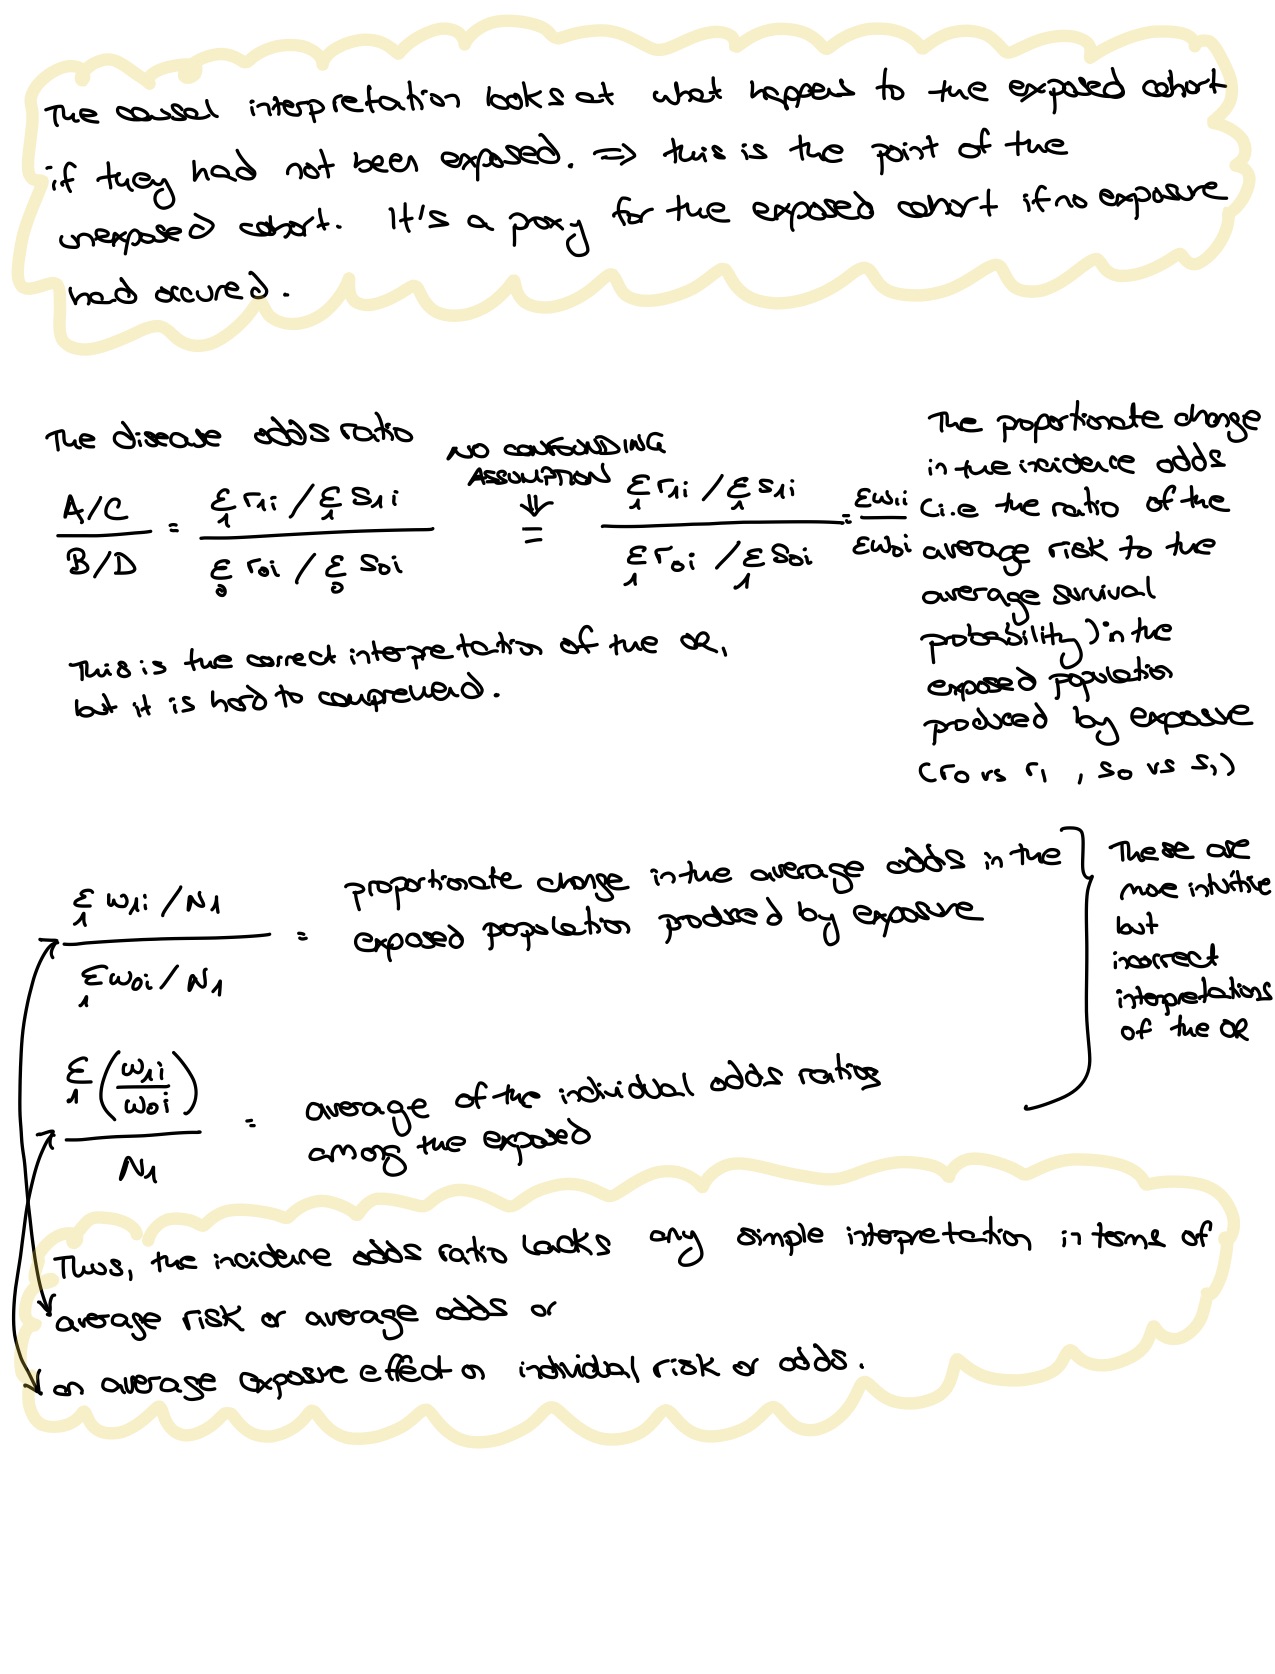 The causal interpretation looks at what happens to the exposed cohort
if they had not been exposed. => this is the point of the
unexposed cohort. It's a proxy for the exposed cohort if no exposure
had occured.
The disease odds ratio
NO CONFOUNDING
ASSUMPTION
⇓
A/C / B/D = (Σ₁ r₁i / Σ₁ s₁i) / (Σ₀ r₀i / Σ₀ s₀i) = (Σ₁ r₁i / Σ₁ s₁i) / (Σ₁ r₀i / Σ₁ s₀i) = Σw₁i / Σw₀i
The proportionate change
in the incidence odds
(i.e the ratio of the
average risk to the
average survival
probability) in the
exposed population
produced by exposure
(r₀ vs r₁ , s₀ vs s₁)
This is the correct interpretation of the OR,
but it is hard to comprehend.
(Σ₁ w₁i / N₁) / (Σ₁ w₀i / N₁) = proportionate change in the average odds in the
exposed population produced by exposure
Σ₁ (w₁i / w₀i) / N₁ = average of the individual odds ratios
among the exposed
These are
more intuitive
but
incorrect
interpretations
of the OR
Thus, the incidence odds ratio lacks any simple interpretation in terms of
average risk or average odds or
on average exposure effect on individual risk or odds.